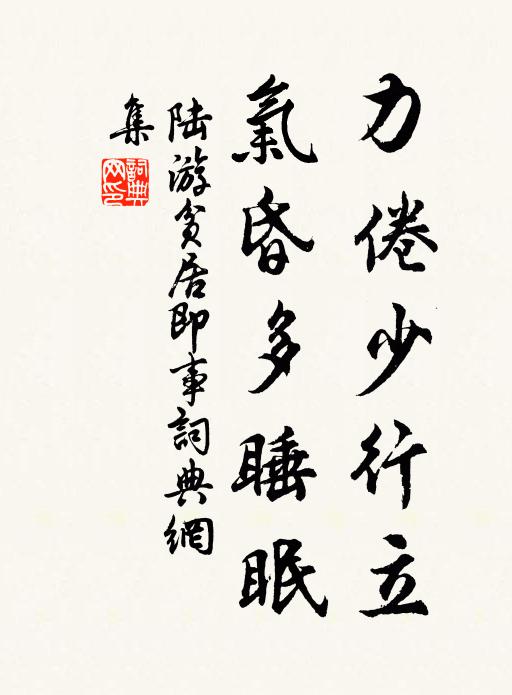 力倦少行立
氣昏多睡眠
陆游貧居即事詞典網
集
詞典
网印